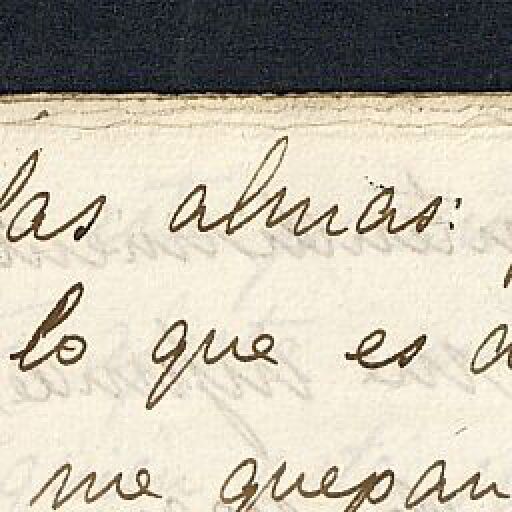 las almas:
lo que es a
me quepan